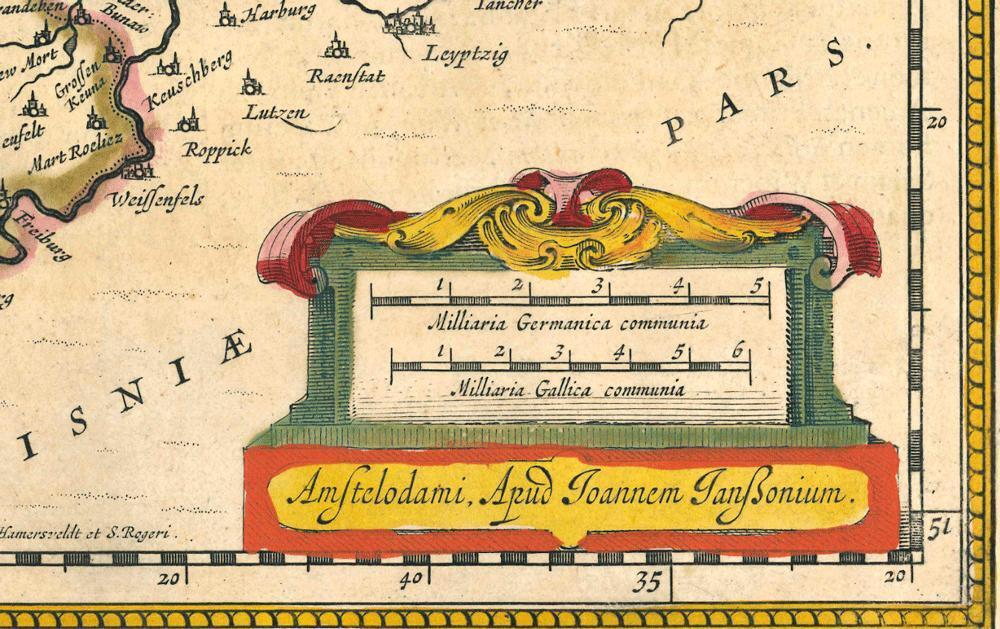 Harburg
Bunaw
Leyptzig
Raenstat
Keuschberg
Grossen
Keuna
Lutzen
Roppick
Mart Roeliez
Weissenfels
Freiburg
PARS.
ISNIÆ
20
1 2 3 4 5
Milliaria Germanica communia
1 2 3 4 5 6
Milliaria Gallica communia
Amstelodami, Apud Joannem Janßonium.
Hamersveldt et S. Rogeri.
51
20 40 35 20